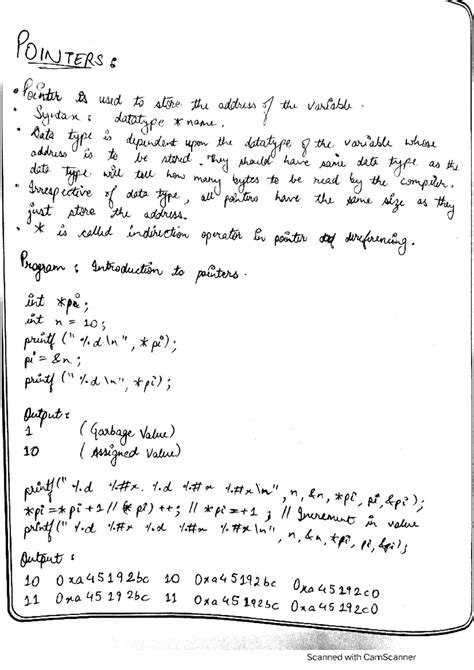 POINTERS :
• Pointer is used to store the address of the variable.
• Syntax : datatype *name.
• Data type is dependent upon the datatype of the variable whose
address is to be stored. They should have same data type as the
data type will tell how many bytes to be read by the compiler.
• Irrespective of data type, all pointers have the same size as they
just store the address.
• * is called indirection operator in pointer dereferencing.
Program : Introduction to pointers.
int *pi;
int n = 10;
printf (" %d \n", *pi);
pi = &n;
printf (" %d \n", *pi);
Output :
1 (Garbage Value)
10 (Assigned Value)
printf(" %d %#x %d %#x %#x\n", n, &n, *pi, pi, &pi);
*pi = *pi + 1 // (*pi) ++; // *pi = +1 ; // Increment in value
printf(" %d %#x %d %#x %#x\n", n, &n, *pi, pi, &pi);
Output :
10 0xa45192bc 10 0xa45192bc 0xa45192c0
11 0xa45192bc 11 0xa45192bc 0xa45192c0
Scanned with CamScanner